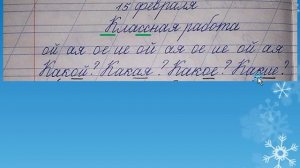 15 февраля
Классная работа
ой ая ое ие ой ая ое ие ой ая
Какой? Какая? Какое? Какие?